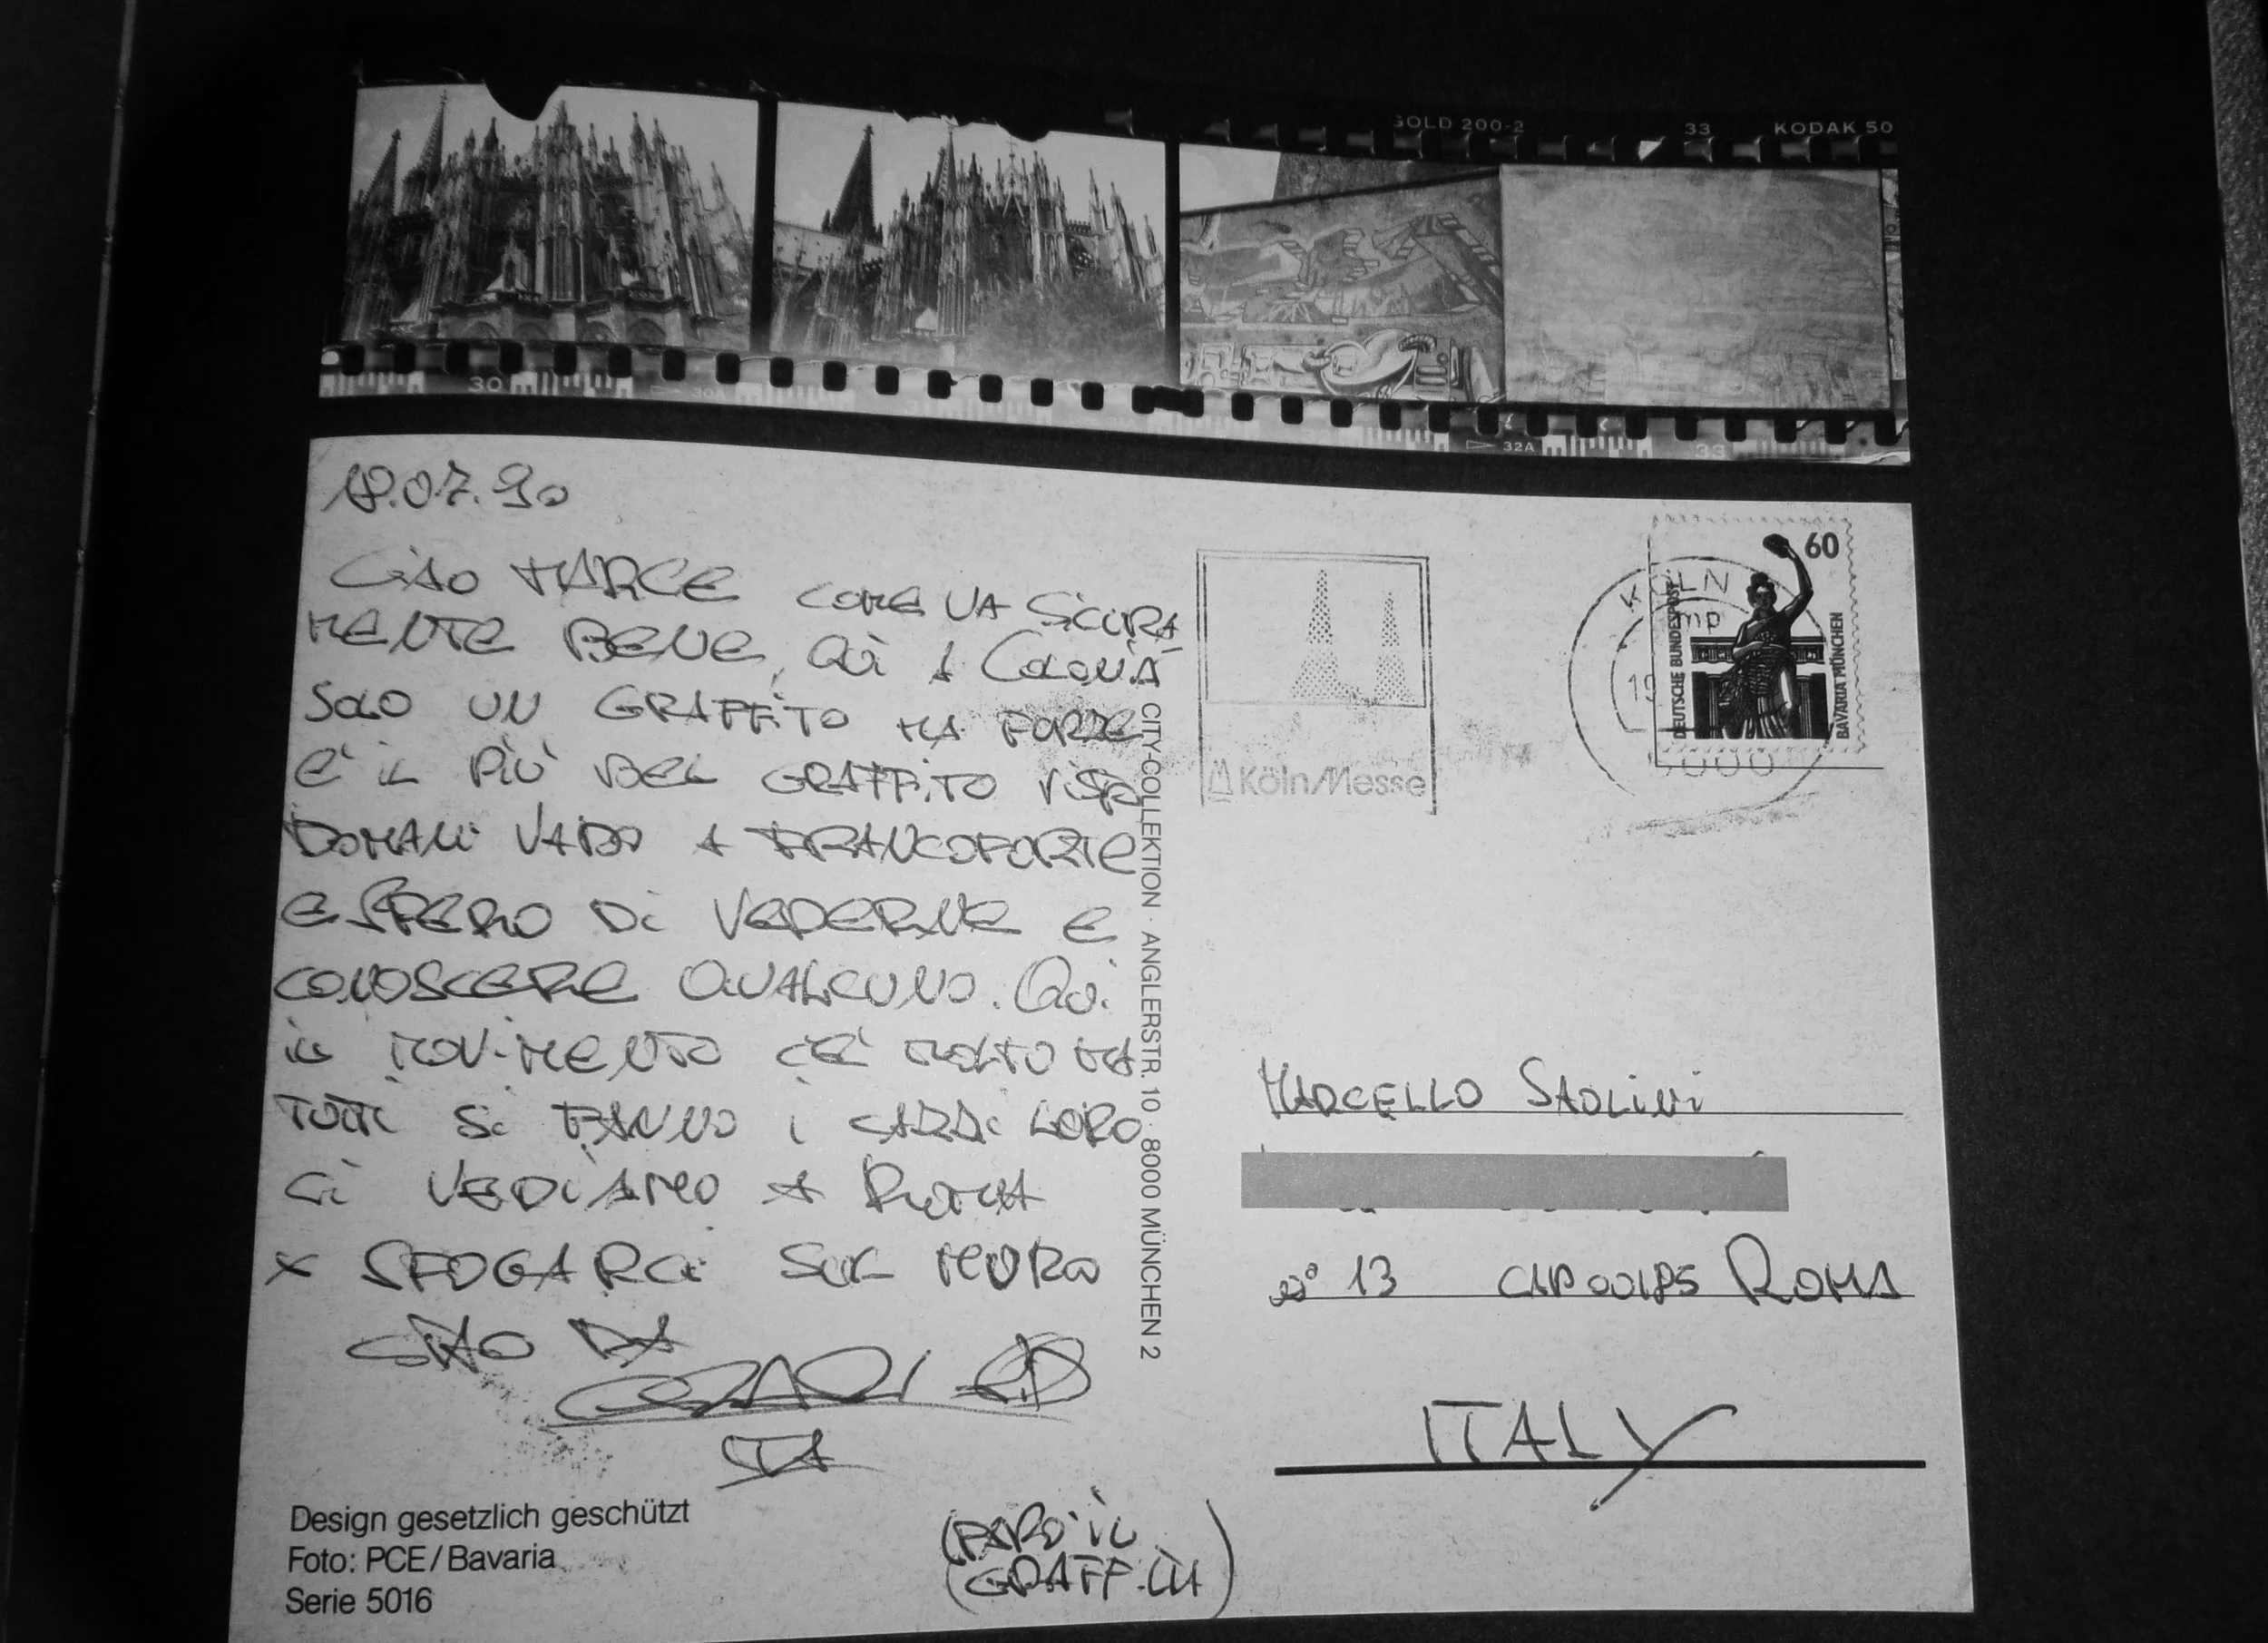 GOLD 200-2 33 KODAK 50
30 30A 32A 33
18.07.90
CIAO MARCE COME VA SICURA
MENTE BENE, QUI A COLONIA
SOLO UN GRAFFITO MA FORSE
E' IL PIÙ BEL GRAFFITO VISTO
DOMANI VADO A FRANCOFORTE
E SPERO DI VEDERNE E
CONOSCERE QUALCUNO. QUI
IL MOVIMENTO C'È MOLTO MA
TUTTI SI FANNO I CAZZI LORO
CI VEDIAMO A ROMA
X SFOGARCI SUL MURO
CIAO DA
STA
Design gesetzlich geschützt
Foto: PCE/Bavaria
Serie 5016
(FARO' IL
GRAFF. LÌ)
CITY-COLLEKTION · ANGLERSTR. 10 · 8000 MÜNCHEN 2
Köln/Messe
KÖLN
mp
19
5000
60
DEUTSCHE BUNDESPOST
BAVARIA MÜNCHEN
MARCELLO SAOLINI
n° 13 CAP 00185 ROMA
ITALY